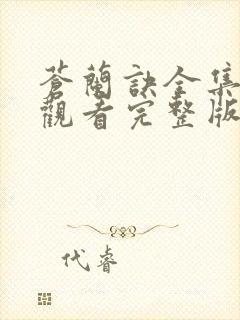 蒼蘭訣全集
觀看完整版
代睿